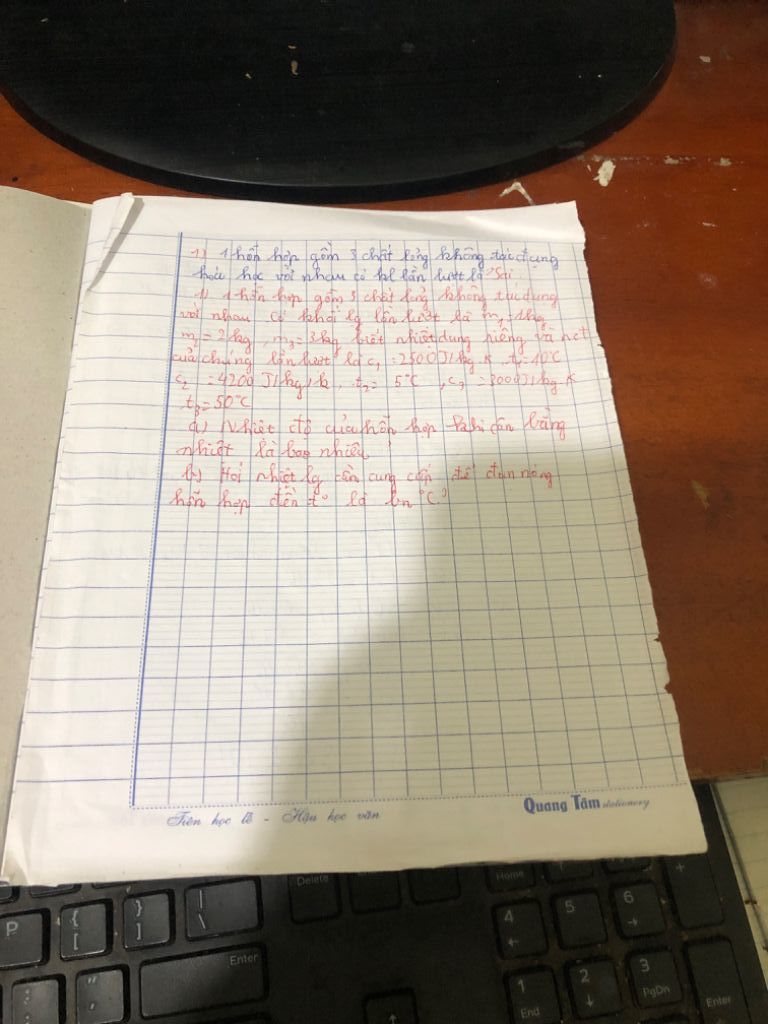 1) 1 hỗn hợp gồm 3 chất lỏng không tác dụng
hoá học với nhau có kl lần lượt là Sai.
1) 1 hỗn hợp gồm 3 chất lỏng không tác dụng
với nhau có khối lg lần lượt là m₁=1kg
m₂=2kg, m₃=3kg biết nhiệt dung riêng và nđ
của chúng lần lượt là c₁=2500J/kg.K t₁=10°C
c₂=4200J/kg/k, t₂= 5°C, c₃=3000J/kg.K
t₃=50°C
a) Nhiệt độ của hỗn hợp khi cân bằng
nhiệt là bao nhiêu?
b) Hỏi nhiệt lg cần cung cấp để đun nóng
hỗn hợp đến t° là bn °C?
Tiên học lễ - Hậu học văn
Quang Tâm stationery
Delete
Home
P
{ [
} ]
| \
4
5
6
+
Enter
" '
1 End
2
3 PgDn
Enter